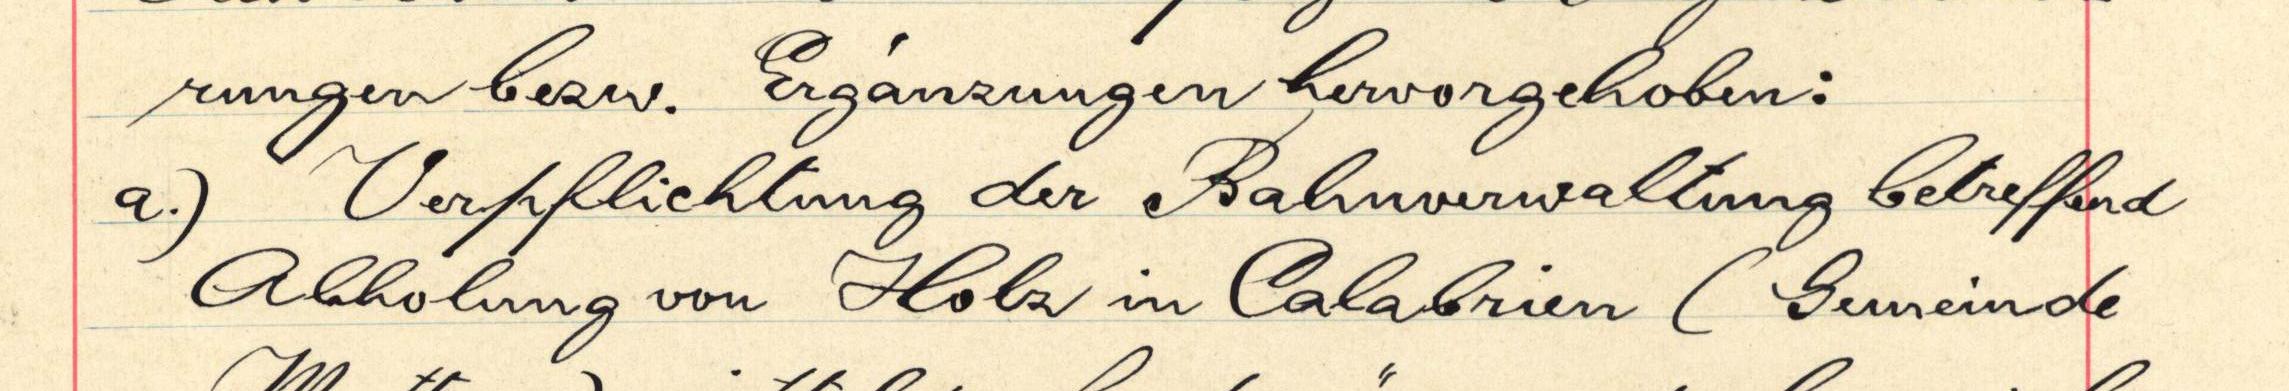 rungen bezw. Ergänzungen hervorgehoben:
a.) Verpflichtung der Bahnverwaltung betreffend
Abholung von Holz in Calabrien (Gemeinde